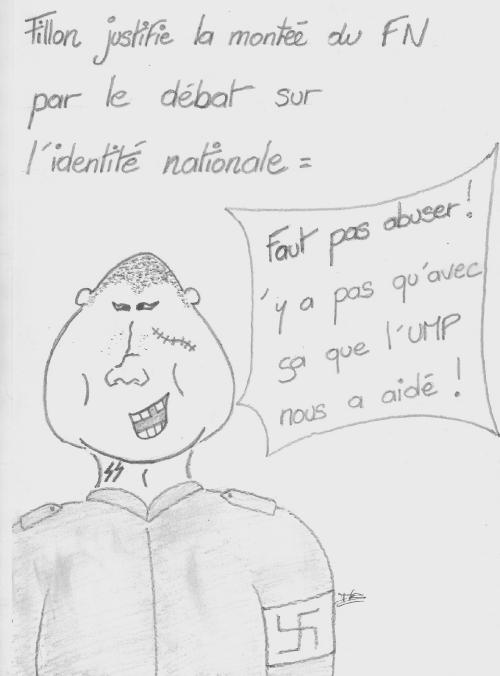 Fillon justifie la montée du FN
par le débat sur
l'identité nationale =
Faut pas abuser !
'y a pas qu'avec
ça que l'UMP
nous a aidé !
SS